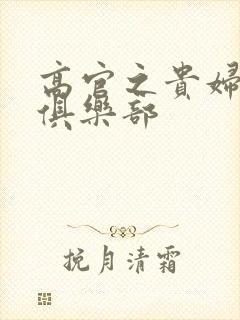 高官之貴婦
俱樂部
挽月清霜